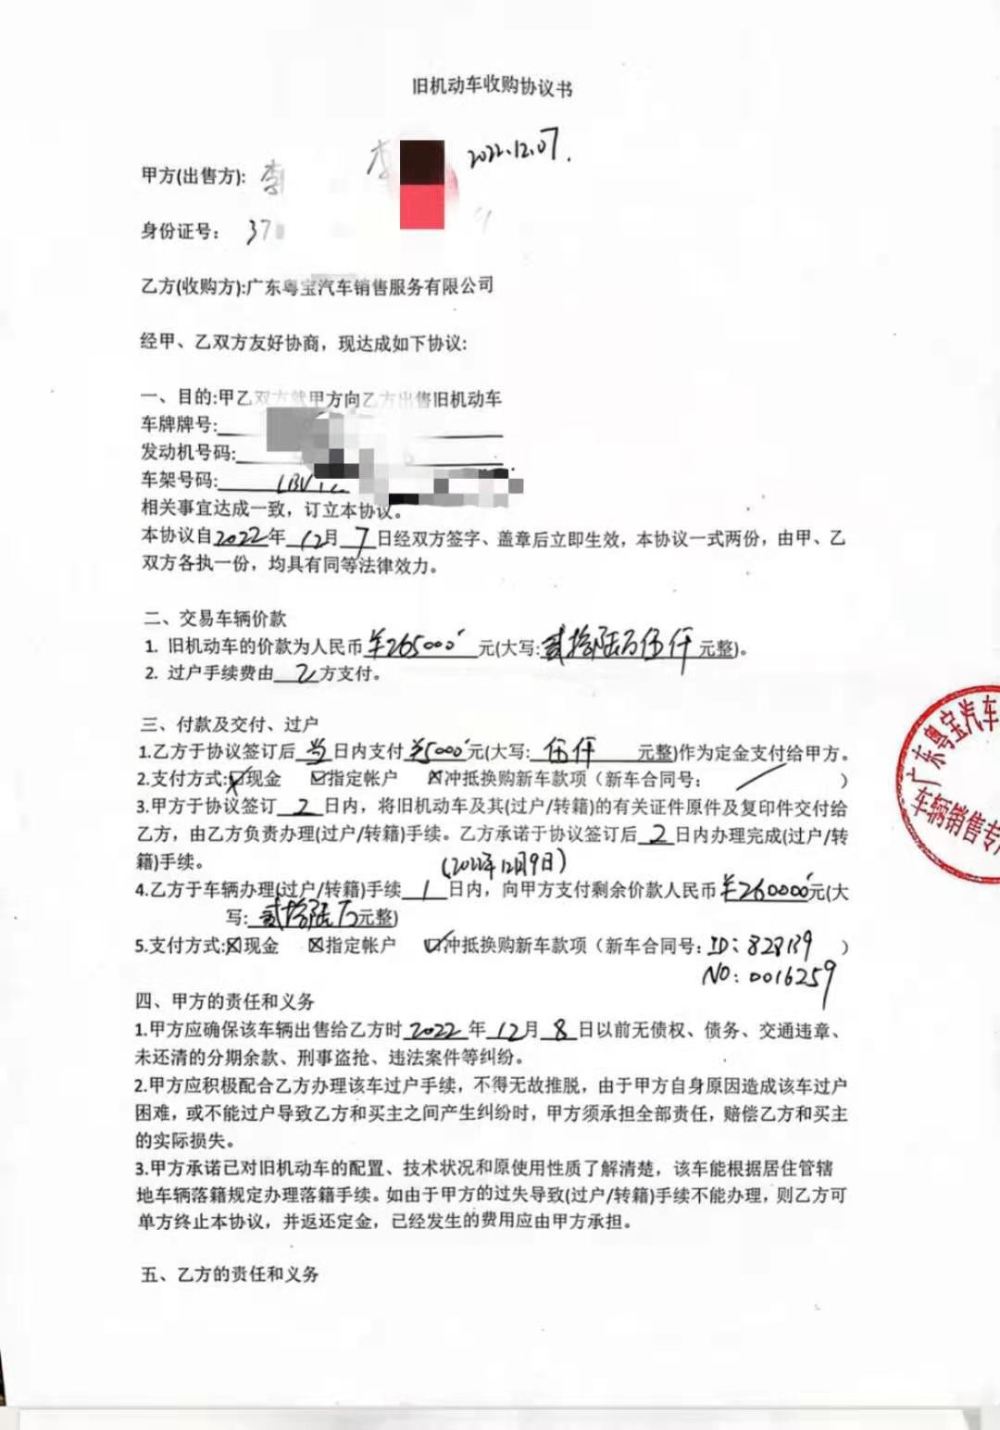 旧机动车收购协议书
李 2022.12.07.
甲方(出售方): 李
身份证号: 37
乙方(收购方):广东粤宝汽车销售服务有限公司
经甲、乙双方友好协商，现达成如下协议:
一、目的:甲乙双方就甲方向乙方出售旧机动车
车牌牌号:
发动机号码:
车架号码: LBV
相关事宜达成一致，订立本协议。
本协议自2022年12月7日经双方签字、盖章后立即生效，本协议一式两份，由甲、乙
双方各执一份，均具有同等法律效力。
二、交易车辆价款
1. 旧机动车的价款为人民币¥265000元(大写:贰拾陆万伍仟元整)。
2. 过户手续费由乙方支付。
三、付款及交付、过户
1.乙方于协议签订后当日内支付¥5000元(大写: 伍仟 元整)作为定金支付给甲方。
2.支付方式:☑现金 ☑指定帐户 ☒冲抵换购新车款项（新车合同号: ／ ）
3.甲方于协议签订2日内，将旧机动车及其(过户/转籍)的有关证件原件及复印件交付给
乙方，由乙方负责办理(过户/转籍)手续。乙方承诺于协议签订后2日内办理完成(过户/转
籍)手续。 (2022年12月9日)
4.乙方于车辆办理(过户/转籍)手续1日内，向甲方支付剩余价款人民币¥260000元(大
写: 贰拾陆万元整)
5.支付方式:☒现金 ☒指定帐户 ☑冲抵换购新车款项（新车合同号: ID: 828139 ）
NO: 0016259
四、甲方的责任和义务
1.甲方应确保该车辆出售给乙方时2022年12月8日以前无债权、债务、交通违章、
未还清的分期余款、刑事盗抢、违法案件等纠纷。
2.甲方应积极配合乙方办理该车过户手续，不得无故推脱，由于甲方自身原因造成该车过户
困难，或不能过户导致乙方和买主之间产生纠纷时，甲方须承担全部责任，赔偿乙方和买主
的实际损失。
3.甲方承诺已对旧机动车的配置、技术状况和原使用性质了解清楚，该车能根据居住管辖
地车辆落籍规定办理落籍手续。如由于甲方的过失导致(过户/转籍)手续不能办理，则乙方可
单方终止本协议，并返还定金，已经发生的费用应由甲方承担。
五、乙方的责任和义务
广东粤宝汽车
车辆销售专